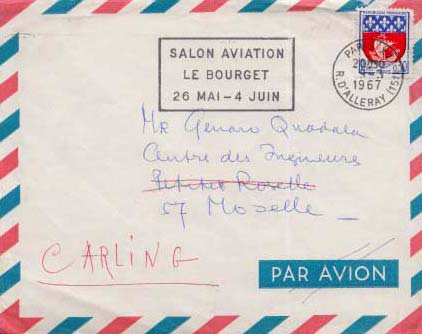 SALON AVIATION
LE BOURGET
26 MAI-4 JUIN
PARIS
1967
R. D'ALLERAY (15e)
Mr Genaro Quadala
Centre des Ingenieurs
Petite Rosselle
57 Moselle
CARLING
PAR AVION